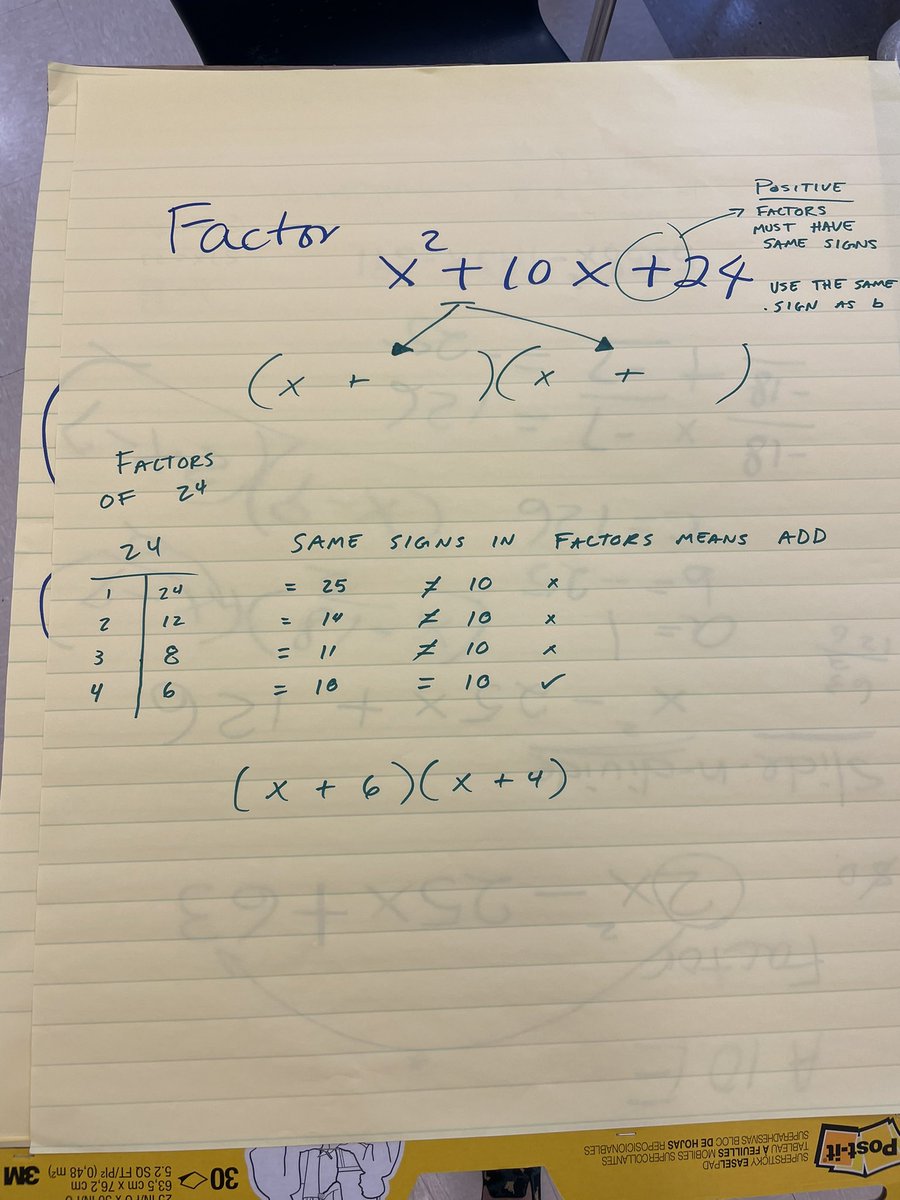 Factor
x² + 10x + 24
POSITIVE
→ FACTORS
MUST HAVE
SAME SIGNS
USE THE SAME
. SIGN AS b
(x + )(x + )
FACTORS
OF 24
24
SAME SIGNS IN FACTORS MEANS ADD
1 | 24 = 25 ≠ 10 x
2 | 12 = 14 ≠ 10 x
3 | 8 = 11 ≠ 10 x
4 | 6 = 10 = 10 ✓
(x + 6)(x + 4)
2x² - 25x + 63
Factor
Post-it
SUPERSTICKY EASEL PAD
TABLEAU À FEUILLES MOBILES SUPERCOLLANTES
SUPERADHESIVAS BLOC DE HOJAS REPOSICIONABLES
30
63,5 cm x 76,2 cm
5.2 SQ FT/PI² (0,48 m²)
3M